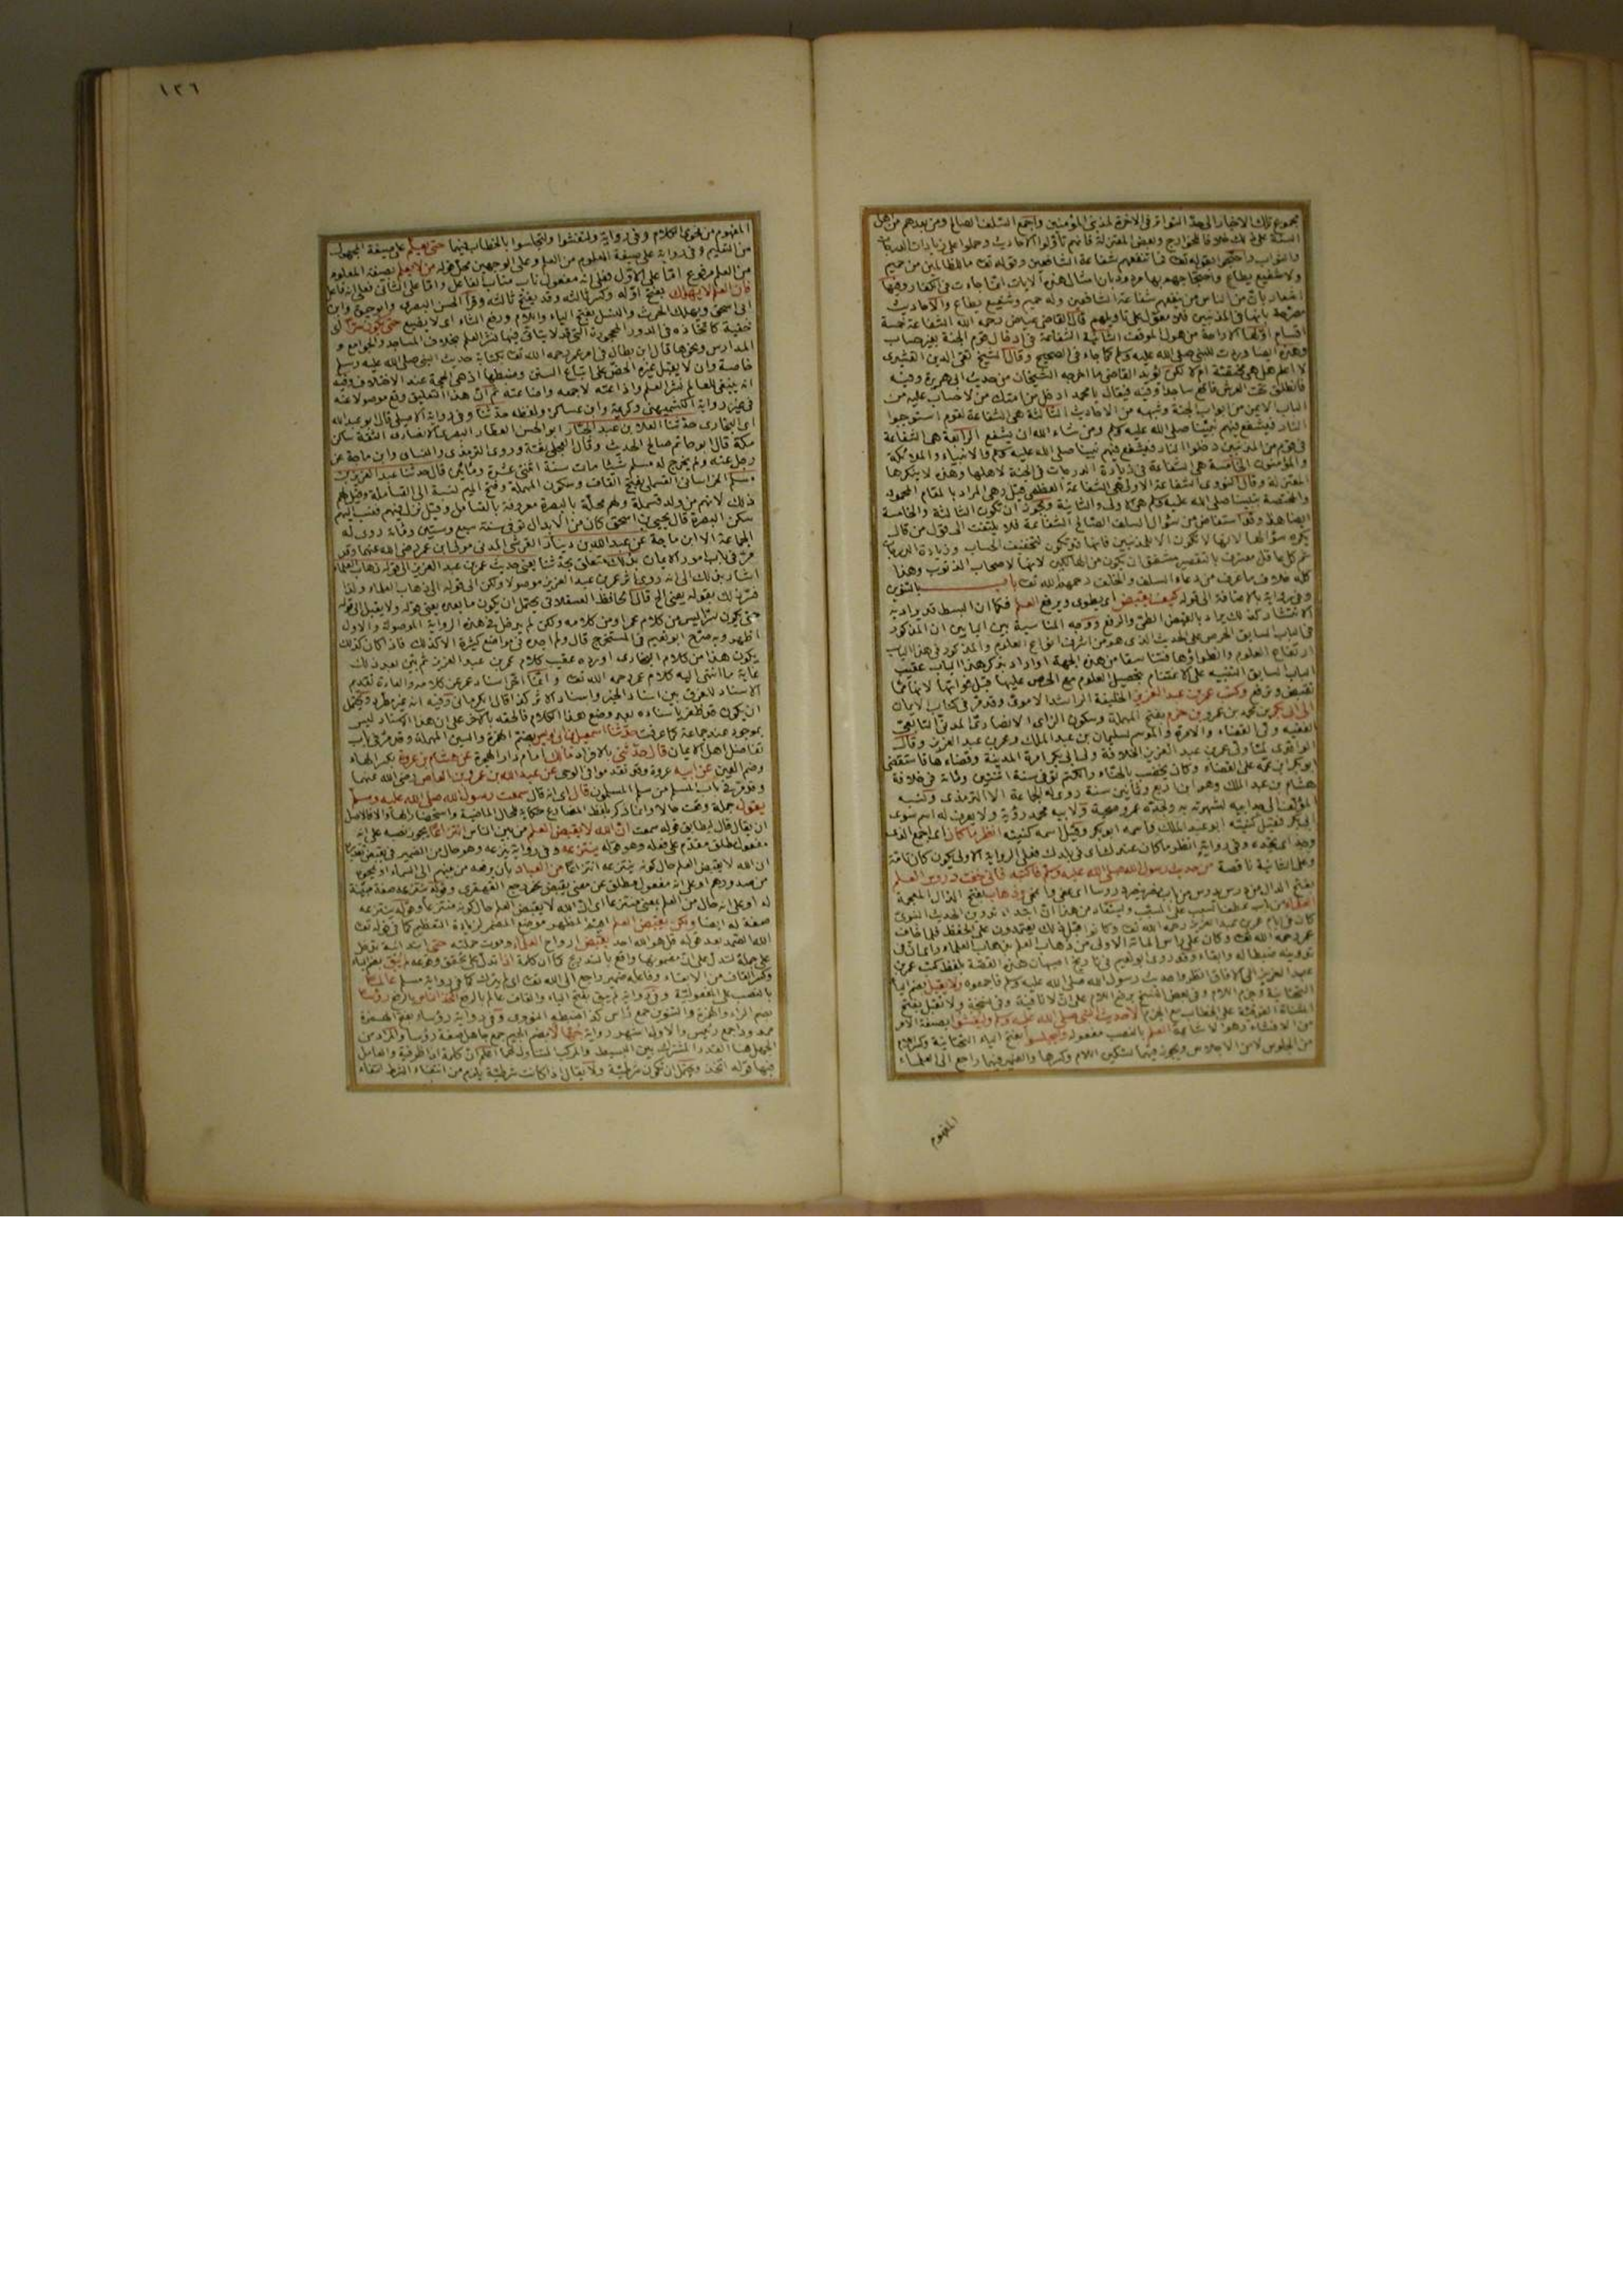 مجموع تلك الاخبار الى حد التواتر فى الآخرة لمذنبى المؤمنين واجمع السلف الصالح ومن بعدهم من اهل
السنة على ذلك خلافا للخوارج وبعض المعتزلة فانهم تأولوا الاحاديث وحملوا على زيادات الدرجات
والثواب واحتجوا بقوله تعالى فما تنفعهم شفاعة الشافعين وبقوله تعالى ما للظالمين من حميم
ولا شفيع يطاع واحتجاجهم بها مردود بان امثال هذه الآيات انما جاءت فى الكفار
مصرحة بانها فى المذنبين فلا معول على تأويلهم قال القاضى عياض رحمه الله الشفاعة خمسة
اقسام اولها الاراحة من هول الموقف الثانية الشفاعة فى ادخال قوم الجنة بغير حساب
وهذه ايضا وردت للنبى صلى الله عليه وسلم كما جاء فى الصحيح وقال الشيخ تقى الدين القشيرى
لا اعلم هل هى مختصة ام لا لكن يؤيد القاضى ما اخرجه الشيخان من حديث ابى هريرة وفيه
فانطلق تحت العرش فاقع ساجدا وفيه فيقال يا محمد ادخل من امتك من لا حساب عليه من
الباب الايمن من ابواب الجنة وشبهه من الاحاديث الثالثة هى الشفاعة لقوم استوجبوا
النار فيشفع فيهم نبينا صلى الله عليه وسلم ومن شاء الله ان يشفع الرابعة هى الشفاعة
فى قوم من المذنبين دخلوا النار فيشفع فيهم نبينا صلى الله عليه وسلم والانبياء والملائكة
والمؤمنون الخامسة هى الشفاعة فى زيادة الدرجات فى الجنة لاهلها وهذه لا ينكرها
المعتزلة وقال النووى الشفاعة الاولى هى الشفاعة العظمى قيل وهى المراد بالمقام المحمود
والمختصة بنبينا صلى الله عليه وسلم هى الاولى والثانية ويجوز ان تكون الثالثة والخامسة
ايضا هذا وقد استفاض من سؤال السلف الصالح الشفاعة فلا يلتفت الى قول من قال
يكره سؤالها لانها لا تكون الا للمذنبين فانها قد تكون لتخفيف الحساب وزيادة الدرجات
ثم كل عاقل معترف بالتقصير مشفق ان يكون من الهالكين لانها لاصحاب الذنوب وهذا
كله خلاف ما عرف من دعاء السلف والخلف رحمهم الله تعالى باب بالتنوين
وفى رواية بالاضافة الى قوله كيف يقبض اى يطوى ويرفع العلم فكما ان البسط قد يراد به
الانتشار كذلك يراد بالقبض الطى والرفع ووجه المناسبة بين البابين ان المذكور
فى الباب السابق الحرص على الحديث الذى هو من اشرف انواع العلوم والمذكور فى هذا الباب
ارتفاع العلوم فتناسقا من هذه الجهة او اراد بذكر هذا الباب عقيب
الباب السابق التنبيه على الاغتنام بتحصيل العلوم مع الحرص عليها قبل فواتها لانها مما
تقبض وترفع وكتب عمر بن عبد العزيز الخليفة الراشد الاموى وقد مر فى كتاب الايمان
الى ابى بكر بن محمد بن عمرو بن حزم بفتح المهملة وسكون الزاى الانصارى المدنى التابعى
الفقيه ولى القضاء والامرة والموسم لسليمان بن عبد الملك وعمر بن عبد العزيز وقال
الواقدى لما ولى عمر بن عبد العزيز الخلافة ولى ابا بكر امرة المدينة وقضاءها فاستقضى
ابو بكر ابن عمه على القضاء وكان يخضب بالحناء والكتم توفى سنة اثنتين ومائة فى خلافة
هشام بن عبد الملك وهو ابن اربع وثمانين سنة روى له الجماعة الا الترمذى ونسبه
المؤلف الى جد ابيه لشهرته به ولجده عمرو صحبة ولابيه محمد رؤية ولا يعرف له اسم سوى
ابى بكر فقيل كنيته ابو عبد الملك واسمه ابو بكر وقيل اسمه كنيته انظر ما كان اى اجمع الذى
وجد اى تجده وفى رواية انظر ما كان عندك اى فى بلدك فعلى الرواية الاولى يكون كان تامة
وعلى الثانية ناقصة من حديث رسول الله صلى الله عليه وسلم فاكتبه فانى خفت دروس العلم
بفتح الدال من درس يدرس من باب نصر ينصر دروسا اى عفى وانمحى وذهاب بفتح الذال المعجمة
العلماء من باب عطف السبب على المسبب ويستفاد من هذا ان ابتداء تدوين الحديث النبوى
كان فى ايام عمر بن عبد العزيز رحمه الله تعالى وكانوا قبل ذلك يعتمدون على الحفظ فلما خاف
عمر رحمه الله تعالى وكان على رأس المائة الاولى من ذهاب العلم بذهاب العلماء رأى ان فى
تدوينه ضبطا له وابقاء وقد روى ابو نعيم فى تاريخ اصبهان هذه القصة بلفظ كتب عمر بن
عبد العزيز الى الآفاق انظروا حديث رسول الله صلى الله عليه وسلم فاجمعوه ولا يقبل بضم الياء
التحتانية وجزم اللام وفى بعض النسخ برفع اللام على ان لا نافية وفى نسخة ولا تقبل بفتح
المثناة الفوقية على الخطاب مع الجزم الا حديث النبى صلى الله عليه وسلم وليفشوا بصيغة الامر
من الافشاء وهو الاشاعة العلم بالنصب مفعوله وليجلسوا بفتح الياء التحتانية وكسر اللام
من الجلوس لا من الاجلاس ويجوز فيهما تسكين اللام وكسرها والضمير فيهما راجع الى العلماء
المفهوم
١٢٦
المفهوم من فحوى الكلام وفى رواية ولتفشوا ولتجلسوا بالخطاب فيهما حتى يعلم على صيغة المجهول
من التعليم وفى رواية على صيغة المعلوم من العلم وعلى الوجهين محل قوله من لا يعلم بصيغة المعلوم
من العلم مرفوع اما على الاول فعلى انه مفعول ناب مناب الفاعل واما على الثانى فعلى انه فاعل
فان العلم لا يهلك بفتح اوله وكسر ثالثه وقد يفتح ثالثه وقرأ الحسن البصرى وابو حيوة وابن
ابى اسحق ويهلك الحرث والنسل بفتح الياء واللام ورفع الثاء اى لا يضيع حتى يكون سرا اى
خفية كاتخاذه فى الدور المحجورة التى قد لا يتأتى فيها نشر العلم بخلاف المساجد والجوامع و
المدارس ونحوها قال ابن بطال فى امر عمر رحمه الله تعالى بكتابة حديث النبى صلى الله عليه وسلم
خاصة وان لا يقبل غيره الحض على اتباع السنن وضبطها اذ هى الحجة عند الاختلاف وفيه
انه ينبغى للعالم نشر العلم واذاعته ثم ان هذا التعليق وقع موصولا عنه
فى غير رواية الكشميهنى وكريمة وابن عساكر ولفظه حدثنا وفى رواية الاصيلى قال ابو عبد الله
اى البخارى حدثنا العلاء بن عبد الجبار ابو الحسن العطار البصرى الانصارى الثقة سكن
مكة قال ابو حاتم صالح الحديث وقال العجلى ثقة وروى الترمذى والنسائى وابن ماجة عن
رجل عنه ولم يخرج له مسلم شيئا مات سنة اثنتى عشرة ومائتين قال حدثنا عبد العزيز بن
مسلم الخراسانى القسملى بفتح القاف وسكون المهملة وفتح الميم نسبة الى القساملة وقيل لهم
ذلك لانهم من ولد قسملة ولهم محلة بالبصرة معروفة بالقسامل وقيل نزل فيهم فنسب اليهم
سكن البصرة قال يحيى بن اسحق كان من الابدال توفى سنة سبع وستين ومائة روى له
الجماعة الا ابن ماجة عن عبد الله بن دينار القرشى المدنى مولى ابن عمر رضى الله عنهما وقد
مر فى باب امور الايمان بذلك متعلق بحدثنا يعنى حديث عمر بن عبد العزيز الى قوله ذهاب العلماء
اشار بذلك الى انه روى اثر عمر بن عبد العزيز موصولا ولكن الى قوله الى ذهاب العلماء ولذا
فسر ذلك بقوله يعنى الخ قال الحافظ العسقلانى يحتمل ان يكون ما بعده يعنى قوله ولا يقبل الى قوله
حتى يكون سرا ليس من كلام عمر او من كلامه ولكن لم يدخل فى هذه الرواية الموصولة والاول
اظهر وبه صرح ابو نعيم فى المستخرج قال ولم اجده فى مواضع كثيرة الا كذلك فاذا كان كذلك
يكون هذا من كلام البخارى اورده عقيب كلام عمر بن عبد العزيز ثم بين بعد ذلك
غاية ما انتهى اليه كلام عمر رحمه الله تعالى وانما اخر اسناد عمر عن كلامه والعادة تقديم
الاسناد للفرق بين اسناد الخبر واسناد الاثر كذا قال الكرمانى وفيه انه غير مطرد ويحتمل
ان يكون قد ظفر باسناده بعد وضع هذا الكلام فالحقه بالآخر على ان هذا الاسناد ليس
بموجود عند جماعة كما عرفت حدثنا اسمعيل بن ابى اويس بضم الهمزة والسين المهملة وقد مر فى باب
تفاضل اهل الايمان قال حدثنى بالافراد مالك امام دار الهجرة عن هشام بن عروة بكسر الهاء
وضم العين عن ابيه عروة وقد تقدموا فى الوحى عن عبد الله بن عمرو بن العاص رضى الله عنهما
وقد مر فى باب المسلم من سلم المسلمون قال اى انه قال سمعت رسول الله صلى الله عليه وسلم
يقول جملة وقعت حالا وانما ذكر بلفظ المضارع حكاية لحال الماضية واستحضارا لها والا فالاصل
ان يقال قال ليطابق قوله سمعت ان الله لا يقبض العلم من بين الناس انتزاعا يجوز نصبه على انه
مفعول مطلق مقدم على فعله وهو قوله ينتزعه وفى رواية ينزعه وهو حال من الضمير فى يقبض تقديره
ان الله لا يقبض العلم حال كونه ينتزعه انتزاعا من العباد بان يرفعه من بينهم الى السماء او يمحوه
من صدورهم او على انه مفعول مطلق عن معنى يقبض نحو رجع القهقرى وقوله ينتزعه صفة مبينة
له او على انه حال من العلم بمعنى منتزعا اى ان الله لا يقبض العلم حال كونه منتزعا وقوله ينتزعه
صفة له ايضا ولكن يقبض العلم اقيم المظهر موضع المضمر لزيادة التعظيم كما فى قوله تعالى
الله الصمد بعد قوله قل هو الله احد بقبض ارواح العلماء وموت حملته حتى ابتدائية تدخل
على جملة لتدل على ان مضمونها واقع بالتدريج كما ان كلمة اذا تدل على تحقق وقوعه لم يبق بضم الياء
وكسر القاف من الابقاء وفاعله ضمير راجع الى الله تعالى اى لم يترك كما فى رواية مسلم عالما
بالنصب على المفعولية وفى رواية لم يبق بفتح الياء والقاف عالم بالرفع اتخذ الناس بالرفع رؤسا
بضم الراء والهمزة والتنوين جمع رأس كذا ضبطه النووى وفى رواية رؤساء بفتح الهمزة
ممدودا جمع رئيس والاول اشهر رواية جهالا بضم الجيم جمع جاهل صفة رؤسا والمراد من
الجهل هنا القدر المشترك بين البسيط والمركب المتناول لهما اعلم ان كلمة اذا ظرفية والعامل
فيها قوله اتخذ ويحتمل ان تكون شرطية ولا يقال اذا كانت شرطية يلزم من انتفاء الشرط انتفاء